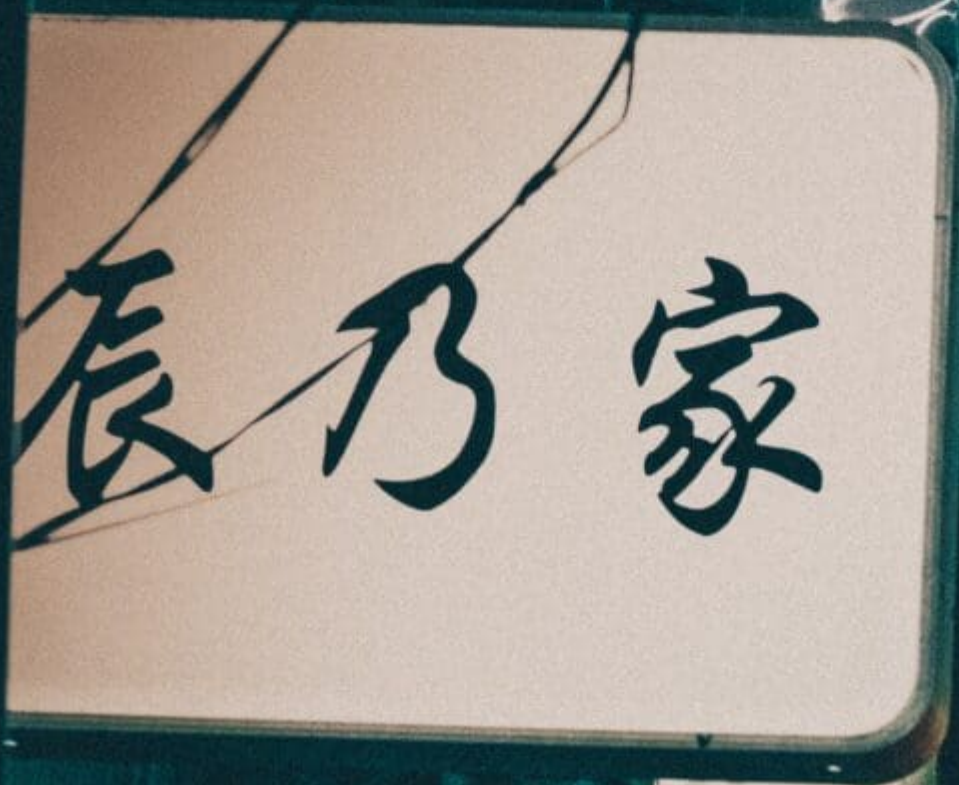 辰乃家